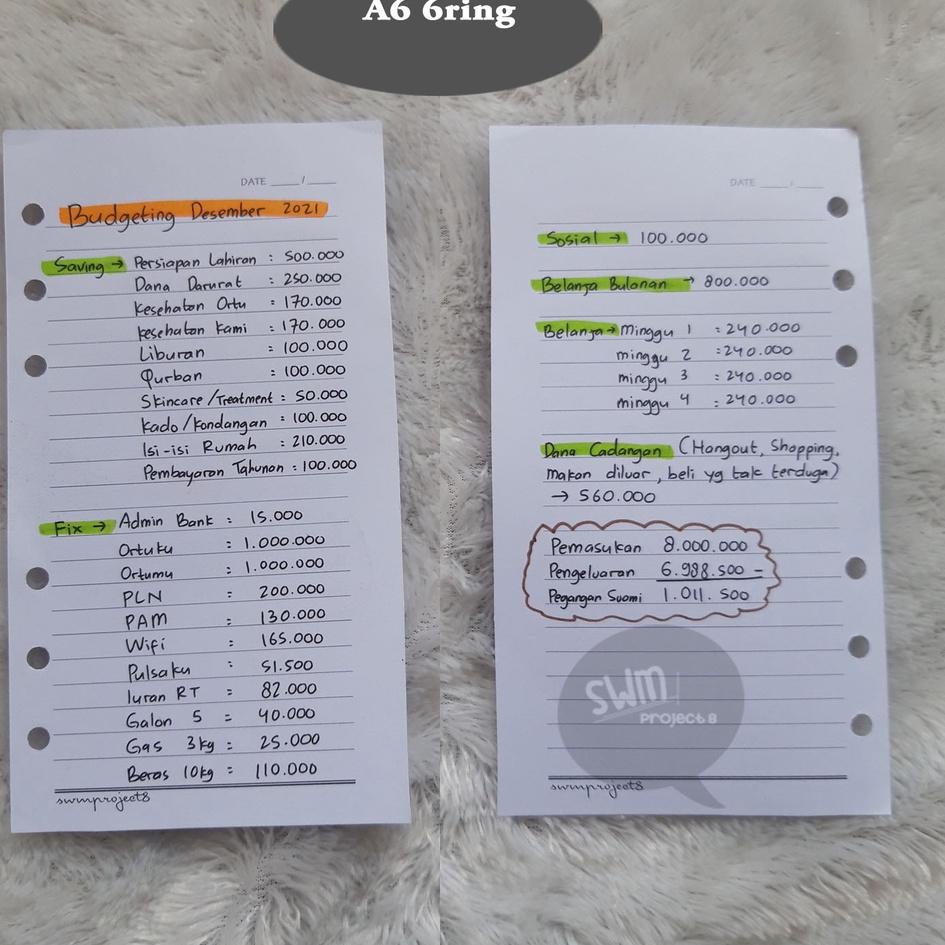 A6 6ring
DATE ___/___
Budgeting Desember 2021
Saving → Persiapan Lahiran : 500.000
Dana Darurat : 250.000
Kesehatan Ortu : 170.000
kesehatan kami : 170.000
Liburan : 100.000
Qurban : 100.000
Skincare/Treatment : 50.000
Kado/Kondangan : 100.000
Isi-isi Rumah : 210.000
Pembayaran Tahunan : 100.000
Fix → Admin Bank : 15.000
Ortuku : 1.000.000
Ortumu : 1.000.000
PLN : 200.000
PAM : 130.000
Wifi : 165.000
Pulsaku : 51.500
Iuran RT = 82.000
Galon 5 = 40.000
Gas 3kg = 25.000
Beras 10kg = 110.000
swmproject8
DATE ___/___
Sosial → 100.000
Belanja Bulanan → 800.000
Belanja → Minggu 1 : 240.000
minggu 2 : 240.000
minggu 3 : 240.000
minggu 4 : 240.000
Dana Cadangan (Hangout, Shopping,
makan diluar, beli yg tak terduga)
→ 560.000
Pemasukan 8.000.000
Pengeluaran 6.988.500 -
Pegangan Suami 1.011.500
SWM
Project 8
swmproject8